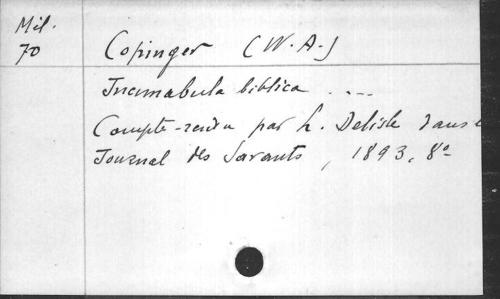 Mil.
70
Copinger (W. A.)
Incunabula biblica ....
Compte-rendu par L. Delisle dans
Journal des Savants, 1893, 8º